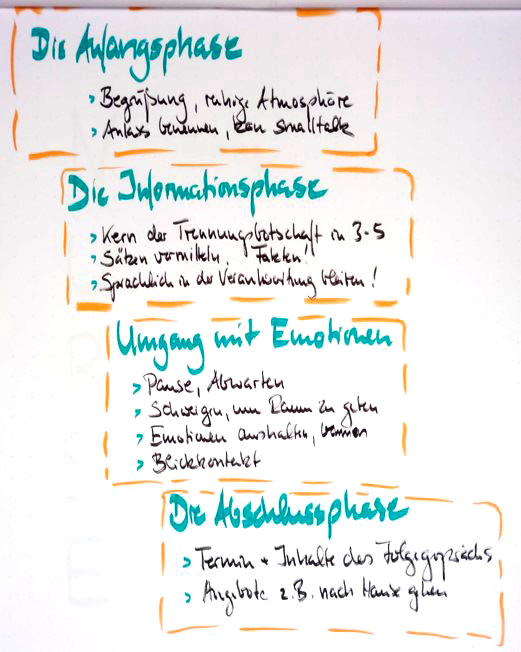 Die Anfangsphase
> Begrüßung, ruhige Atmosphäre
> Anlass benennen, kein Smalltalk
Die Informationsphase
> Kern der Trennungsbotschaft in 3-5
> Sätzen vermitteln. Fakten!
> Sprachlich in der Verantwortung bleiben!
Umgang mit Emotionen
> Pause, Abwarten
> Schweigen, um Raum zu geben
> Emotionen aushalten, benennen
> Blickkontakt
Die Abschlussphase
> Termin + Inhalte des Folgegesprächs
> Angebote z.B. nach Hause gehen